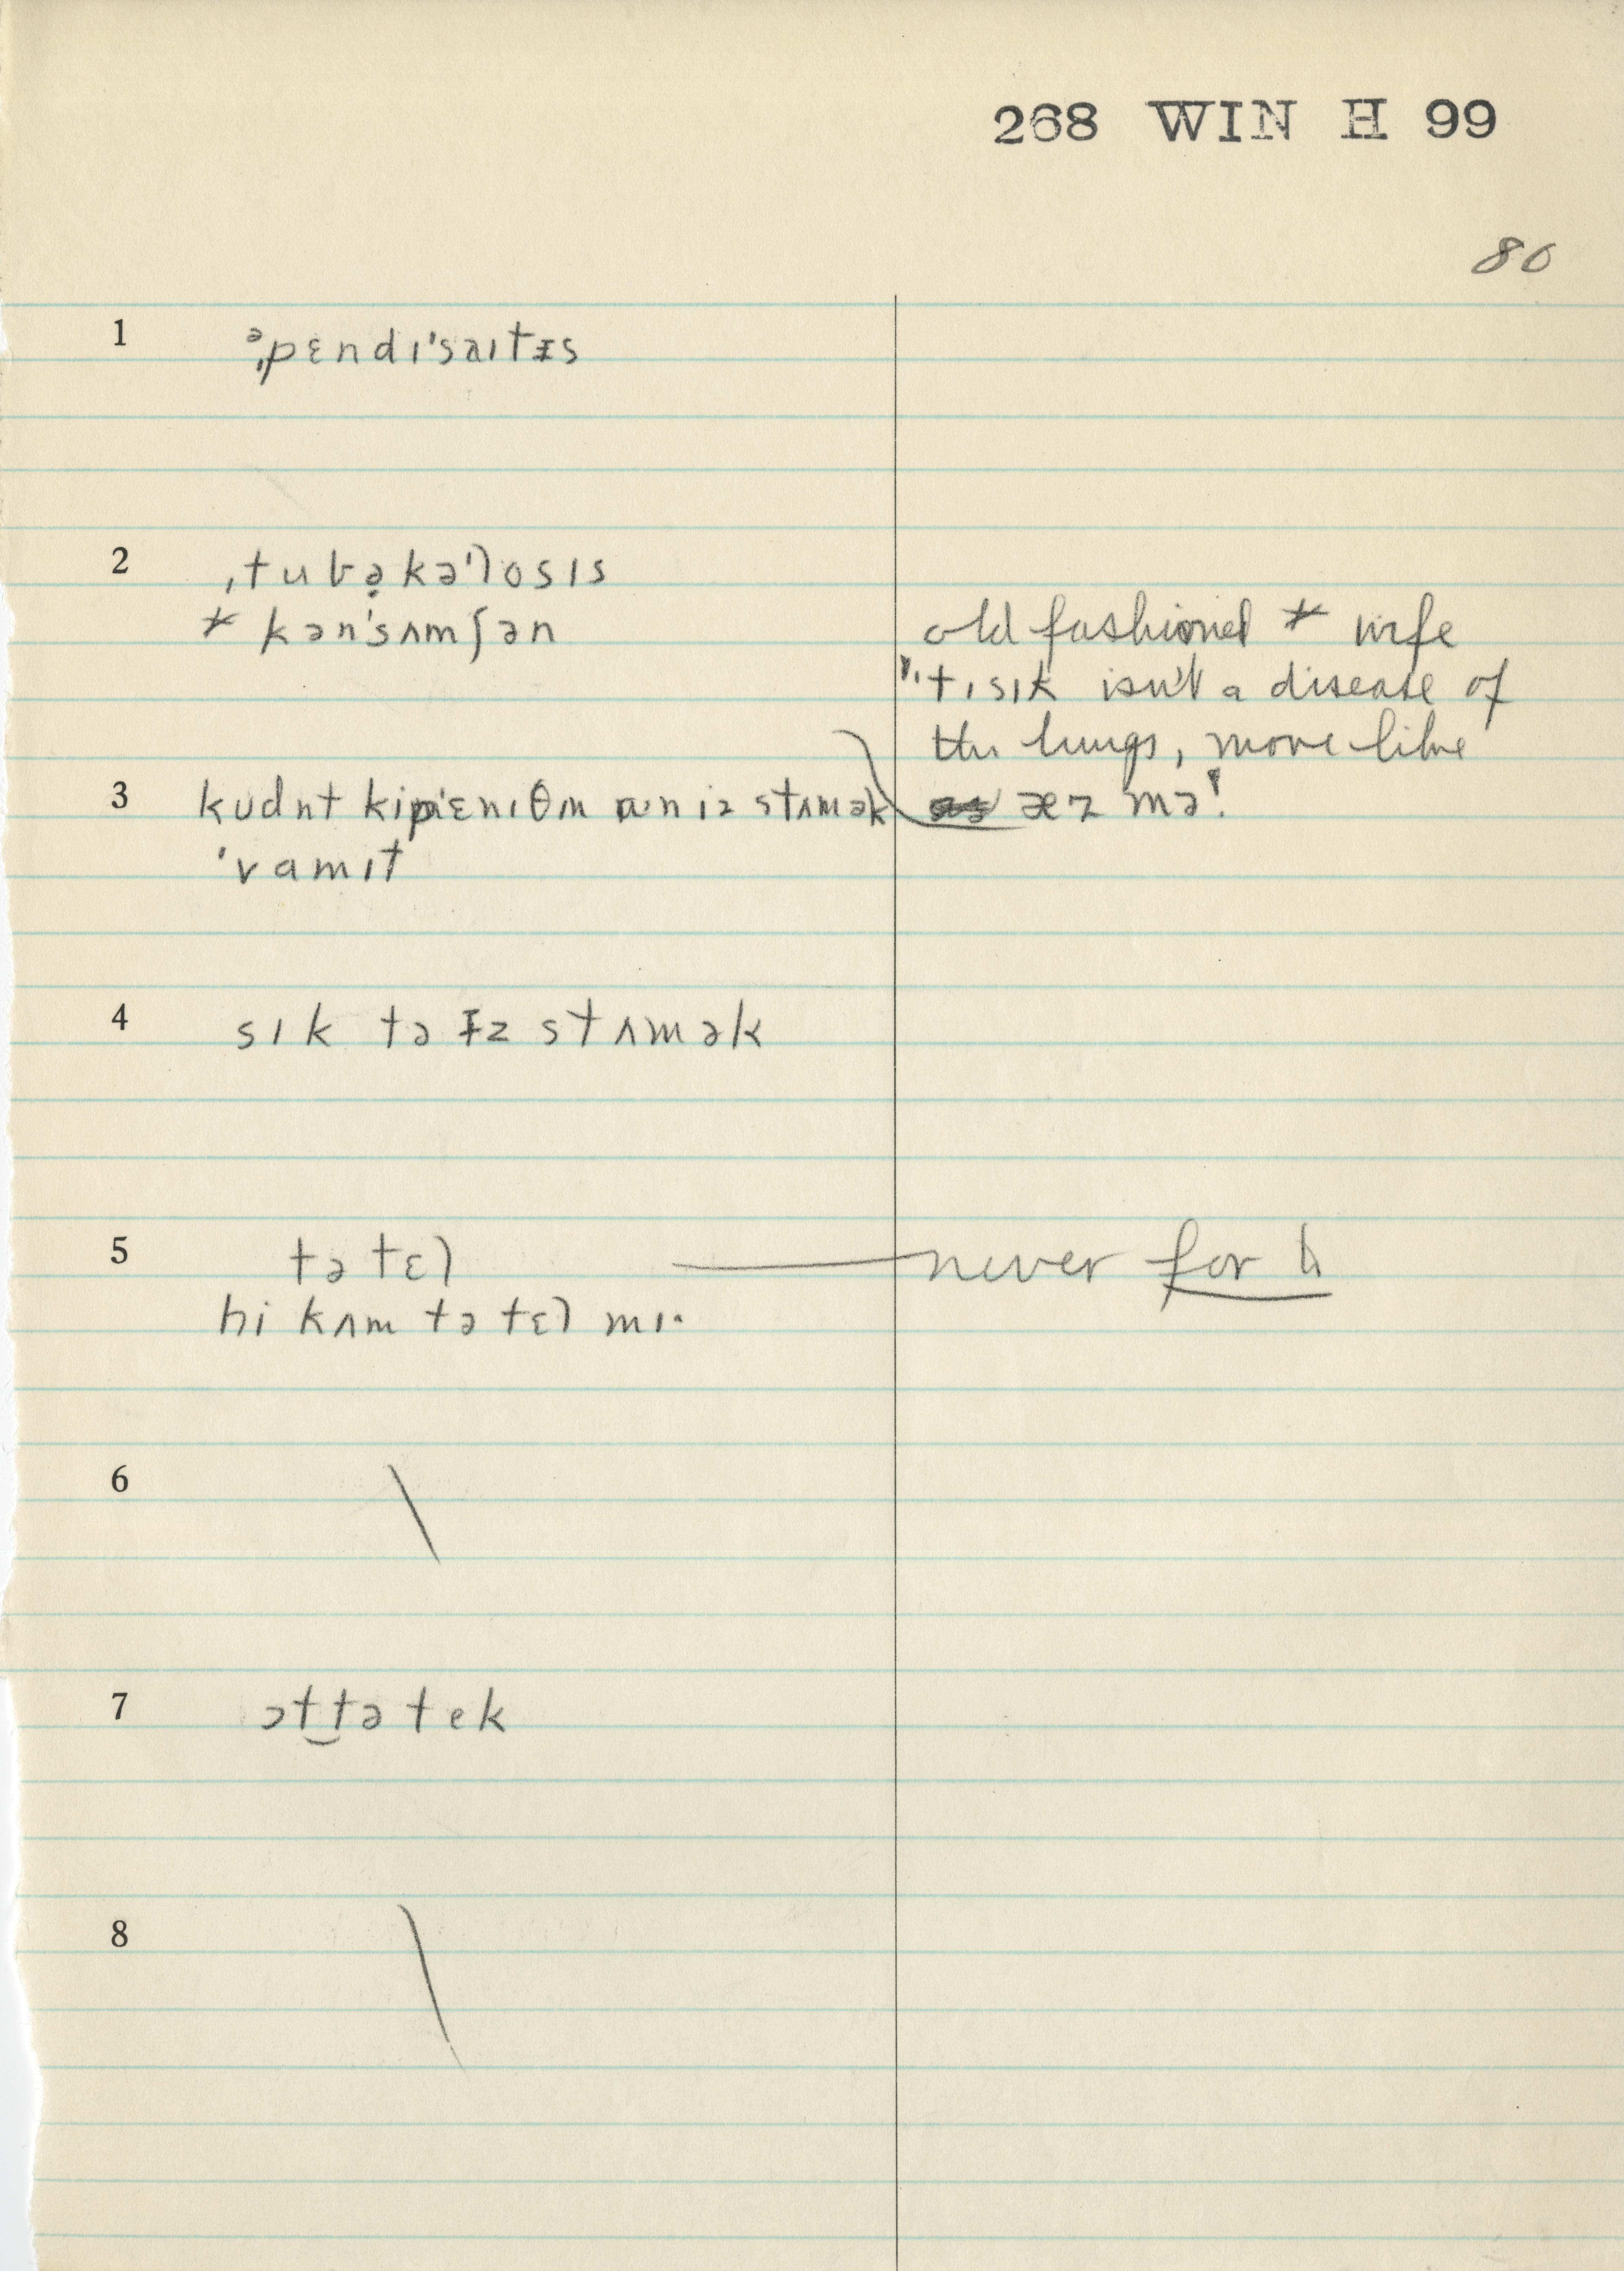 268 WIN H 99
80
1 əˌpɛndɪ'saɪtɪs
2 ˌtubə̣kə'losɪs
* kən'sʌmʃən
old fashioned * wife
"'tɪsɪk isn't a disease of
the lungs, more like
æzmə"
3 kudnt kip ɛnɪθɪn ɪz stʌmək
'vamɪt
4 sɪk tə ɪz stʌmək
5 tə tɛl never for
hi kʌm tə tɛl mɪ·
6
7 ɔt tə tek
8